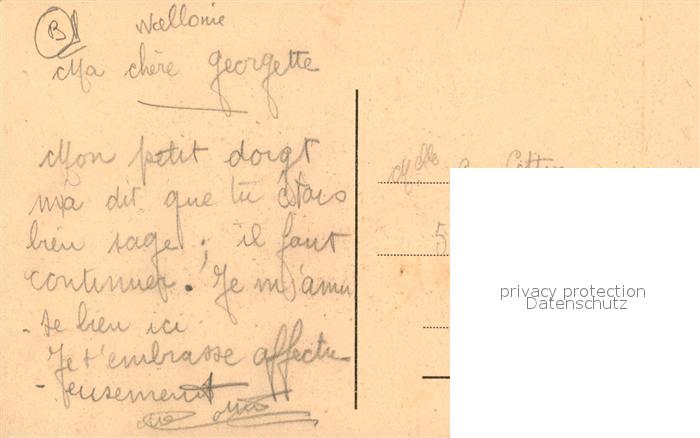 B
Wallonie
Ma chère Georgette
Mon petit doigt
m'a dit que tu étais
bien sage ; il faut
continuer. Je m'amu
-se bien ici
Je t'embrasse affectu-
-eusement
Mlle
5
privacy protection
Datenschutz